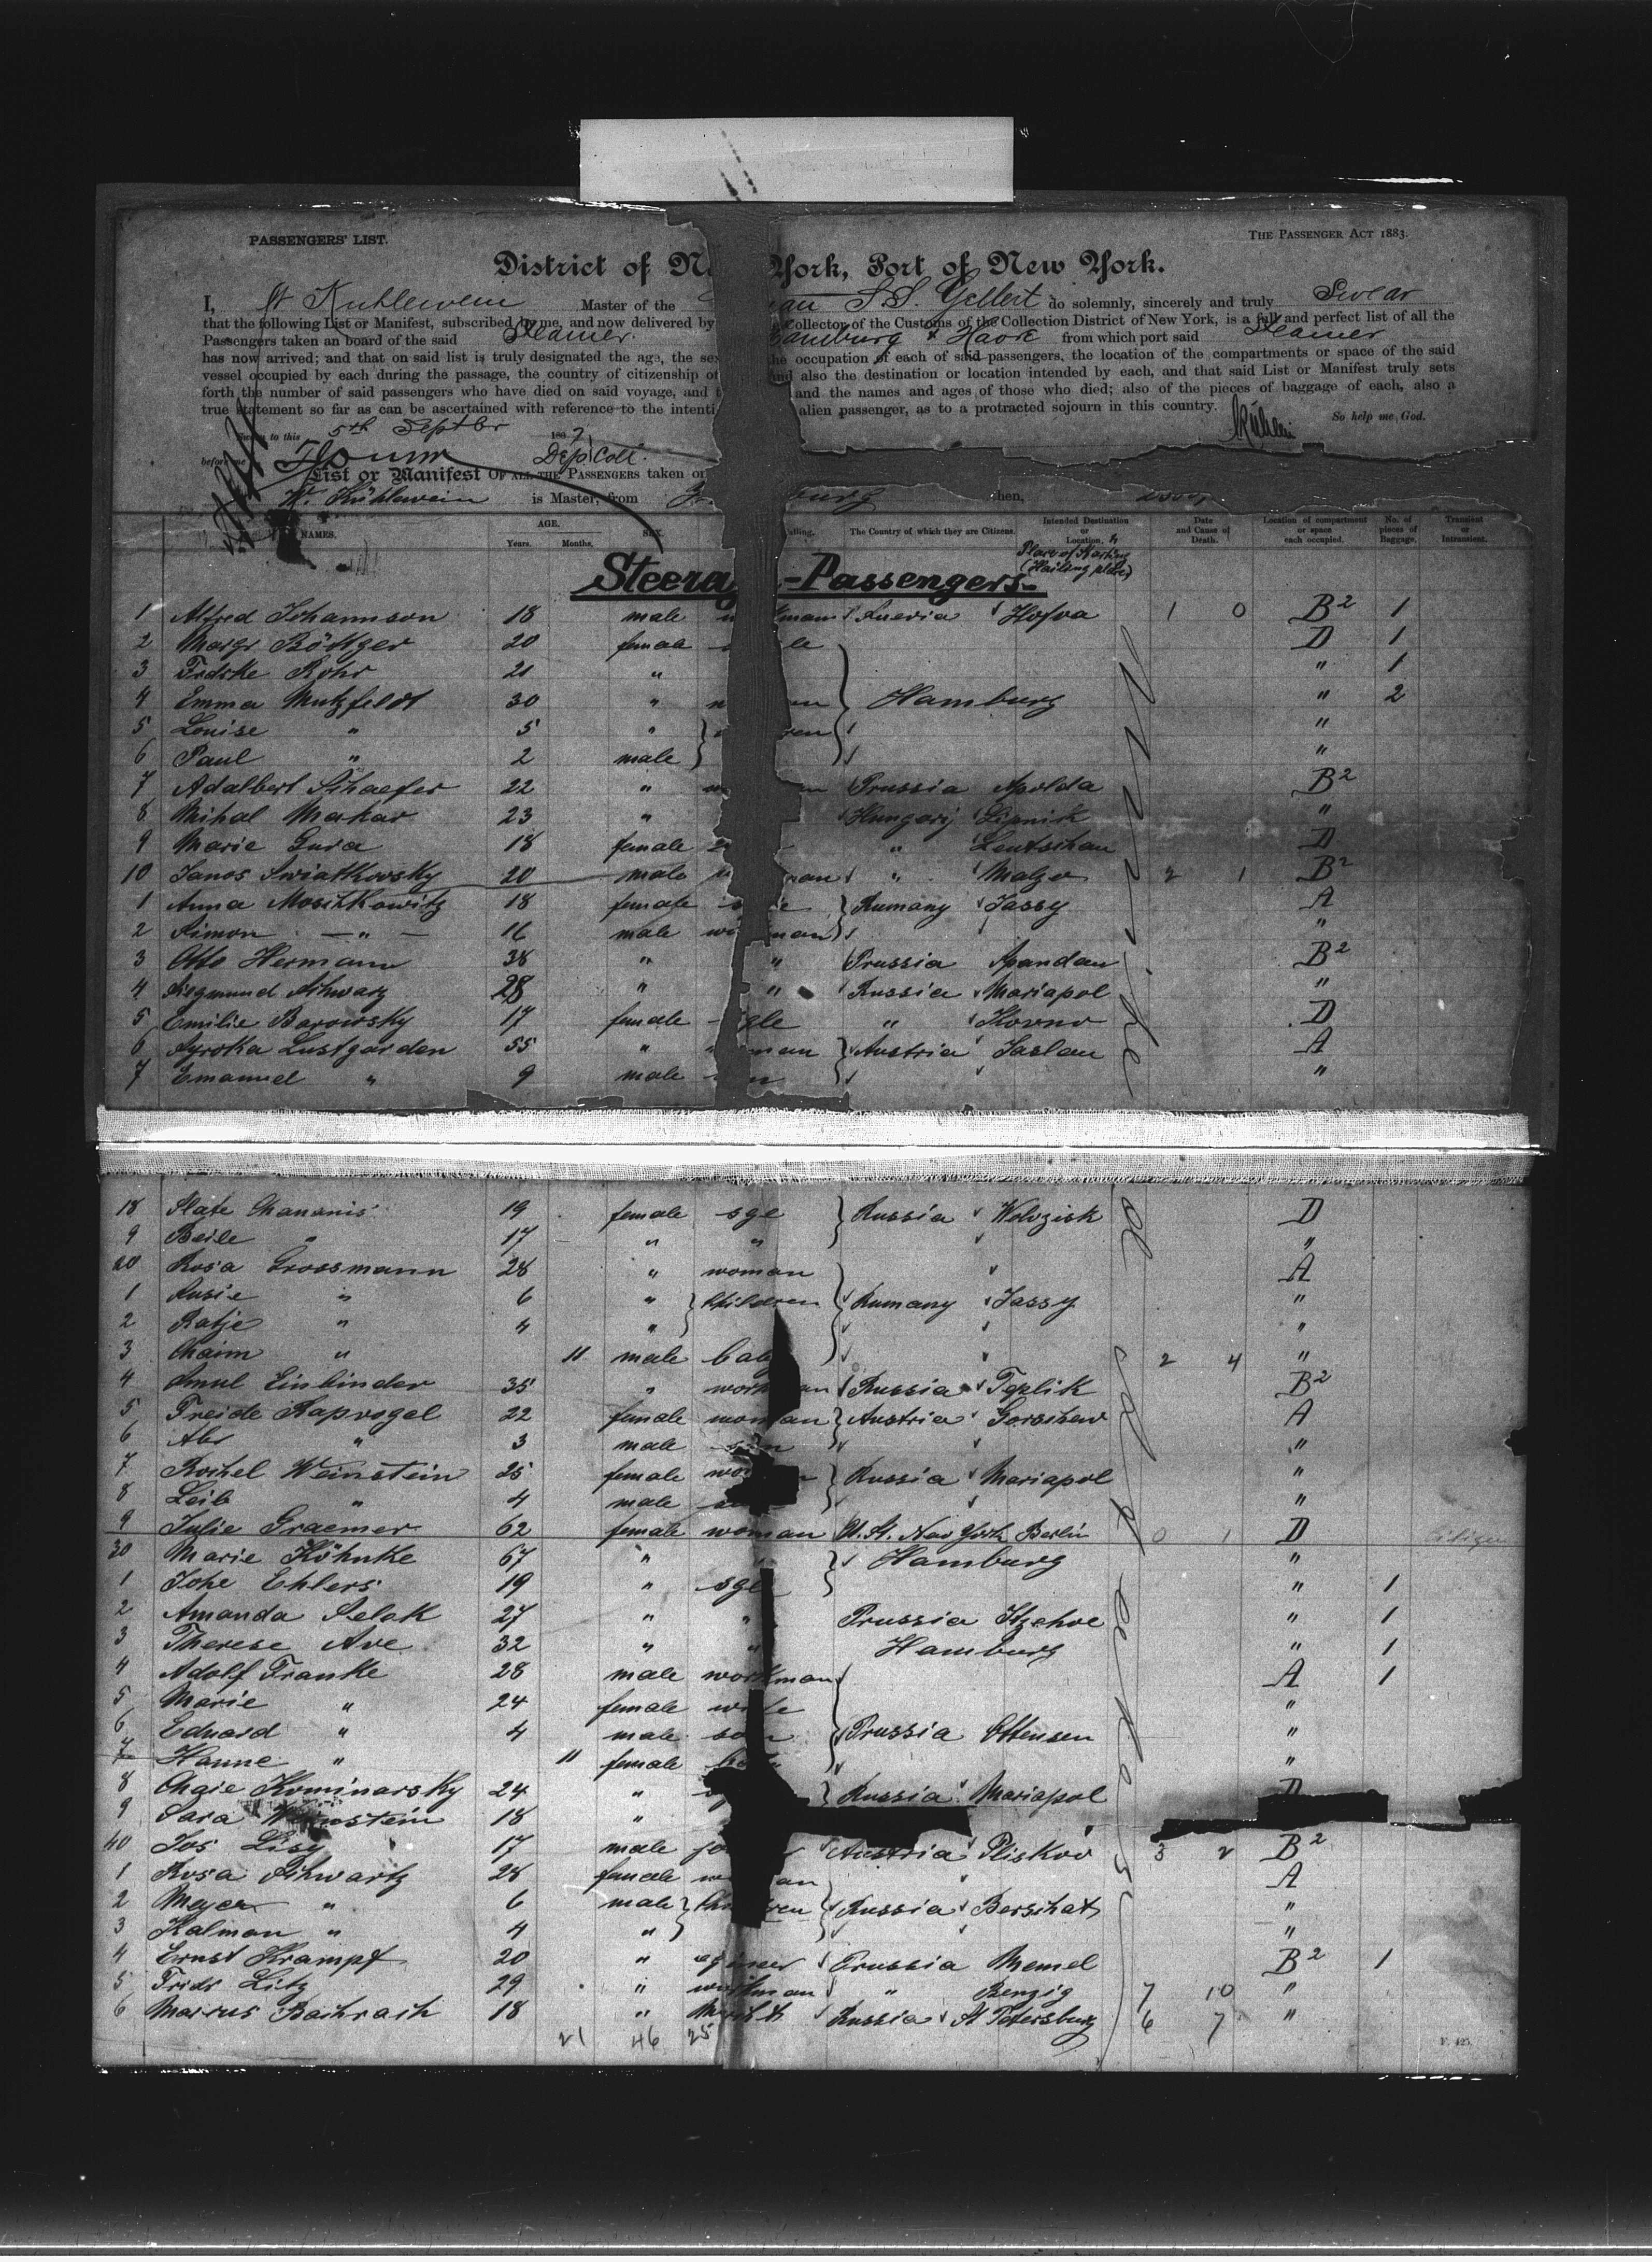 PASSENGERS' LIST.
THE PASSENGER ACT 1883.
District of Ne York, Port of New York.
I, W Kuhlewein Master of the an S.S. Gellert do solemnly, sincerely and truly Swear
that the following List or Manifest, subscribed by me, and now delivered by Collector of the Customs of the Collection District of New York, is a full and perfect list of all the
Passengers taken on board of the said Steamer Hamburg & Havre from which port said Steamer
has now arrived; and that on said list is truly designated the age, the sex the occupation of each of said passengers, the location of the compartments or space of the said
vessel occupied by each during the passage, the country of citizenship of and also the destination or location intended by each, and that said List or Manifest truly sets
forth the number of said passengers who have died on said voyage, and t and the names and ages of those who died; also of the pieces of baggage of each, also a
true statement so far as can be ascertained with reference to the intenti alien passenger, as to a protracted sojourn in this country. So help me God.
Sworn to this 5th Septbr 1887
before me Dep Coll.
List or Manifest OF ALL THE PASSENGERS taken on
W. Kühlewein is Master, from burg then,
NAMES. AGE. Years. Months. SEX. Calling. The Country of which they are Citizens. Intended Destination or Location. Date and Cause of Death. Location of compartment or space each occupied. No. of pieces of Baggage. Transient or Intransient.
Place of Starting
(Hailing place)
Steerage-Passengers.
1 Alfred Johannson 18 male man Suevia Hofva 1 0 B2 1
2 Margr Böttger 20 female le D 1
3 Fredske Rohr 21 " " 1
4 Emma Mutzfeldt 30 " Hamburg " 2
5 Louise " 5 " ren "
6 Paul " 2 male "
7 Adalbert Schaefer 22 " Prussia Apolda B2
8 Mihal Makar 23 " Hungary Lipnik "
9 Marie Gura 18 female " Leutschau D
10 Janos Swiatkowsky 20 male man " Malzo 2 1 B2
1 Anna Mositkowitz 18 female Rumany Jassy A
2 Simon " 16 male man "
3 Otto Hermann 38 " " Prussia Spandau B2
4 Siegmund Schwarz 28 " " Russia Mariapol "
5 Emilie Barowsky 17 female gle " Kovno D
6 Lustgarden 55 " man Austria Jaslau A
7 Emanuel " 9 male "
18 Slate Chananis 19 female sge Russia Wolozisk D
9 Beile " 17 " " "
20 Rosa Grossmann 28 " woman A
1 Susie " 6 " children Rumany Jassy "
2 Ratje " 4 " "
3 Chaim " 11 male baby 2 4 "
4 Smul Einbinder 35 " workman Russia Teplik B2
5 Freide Rapvogel 22 female woman Austria A
6 Abr " 3 male son "
7 Rochel Weinstein 25 female wo Russia Mariapol "
8 Leib " 4 male "
9 Julie Graemer 62 female woman U.St. New York Berlin 0 1 D
30 Marie Köhnke 67 " Hamburg "
1 Johe Ehlers 19 " sgl " 1
2 Amanda Selak 27 " " Prussia Itzehoe " 1
3 Therese Ave 32 " " Hamburg " 1
4 Adolf Franke 28 male workman A 1
5 Marie " 24 female wife "
6 Eduard " 4 male son Prussia Ottensen "
7 Hanne " 11 female "
8 Chaie Kominarsky 24 " Russia Mariapol D
9 Sara Weinstein 18 "
40 Jos Lisy 17 male Austria Pliskov 3 2 B2
1 Rosa Schwartz 28 female an A
2 Meyer " 6 male children Russia Berschat "
3 Kalman " 4 " "
4 Ernst Krampf 20 " Prussia Memel B2 1
5 Fridr Litz 29 " workman " Benzig 7 10 "
6 Marcus Bachrach 18 " Russia St Petersburg 6 7 "
21 46 25